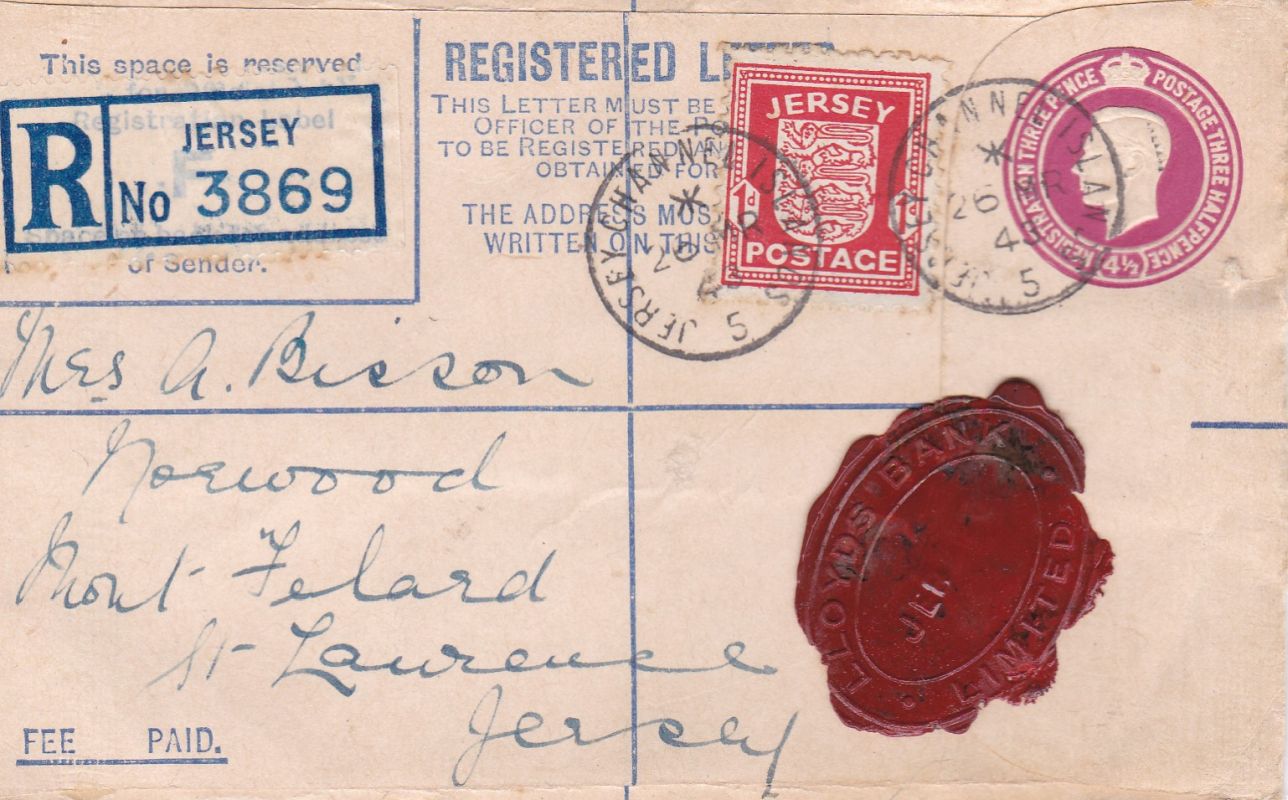 This space is reserved
Registration Label
R
JERSEY
No 3869
of Sender.
REGISTERED LE
THIS LETTER MUST BE
OFFICER OF THE PO
TO BE REGISTERED AN
OBTAINED FOR
THE ADDRESS MUS
WRITTEN ON THIS
JERSEY
1d 1d
POSTAGE
JERSEY CHANNEL ISLANDS
5
JERSEY CHANNEL ISLANDS
26 43
5
REGISTRATION THREE PENCE POSTAGE THREE HALFPENCE
4½
Mrs A. Bisson
Norwood
Mont Felard
St Lawrence
Jersey
LLOYDS BANK
LIMITED
FEE PAID.